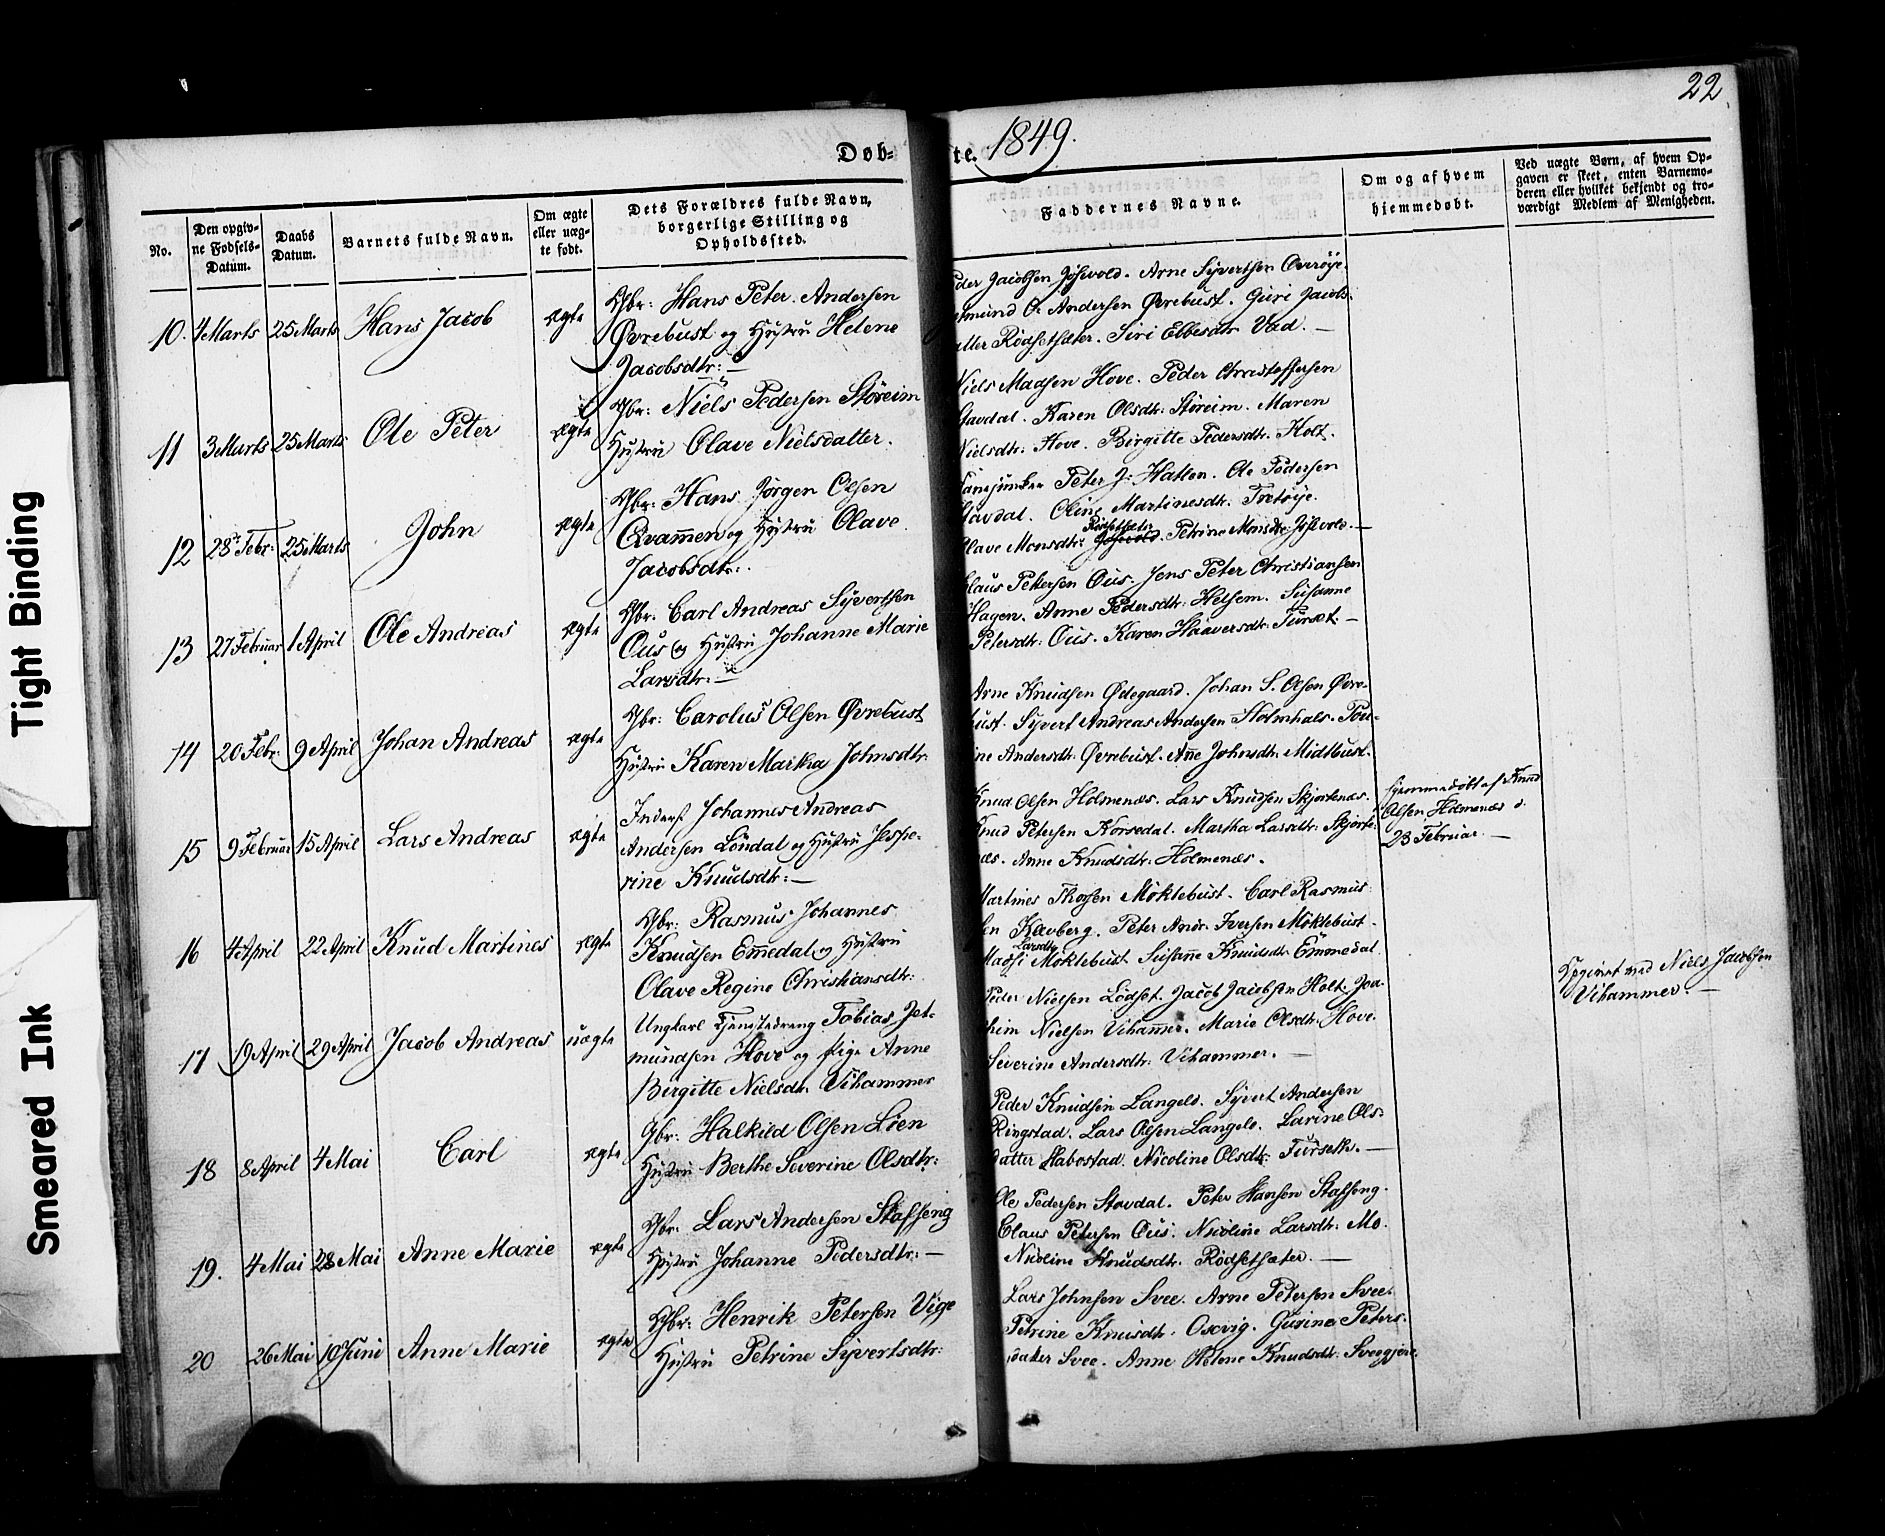 22
Døb-te. 1849.
No.
Den opgiv-
ne Fødsels-
Datum.
Daabs
Datum.
Barnets fulde Navn.
Om ægte
eller uæg-
te født.
Dets Forældres fulde Navn,
borgerlige Stilling og
Opholdssted.
Faddernes Navne.
Om og af hvem
hjemmedøbt.
Ved uægte Børn, af hvem Op-
gaven er skeet, enten Barnemo-
deren eller hvilket bekjendt og tro-
værdigt Medlem af Menigheden.
10. 4 Marts 25 Marts Hans Jacob ægte
Gbr: Hans Peter Andersen
Øvrebust og Hustru Helene
Jacobsdtr: —
der Jacobsen Jøsevold. Arne Syvertsen Overøye.
Andersen Øvrebust. Guri Jacobs-
atter Rødsetsæter. Siri Ebbesdtr. Vad. —
11 3 Marts 25 Marts Ole Peter ægte
Gbr: Niels Pedersen Støreim
Hustru Olave Nielsdatter.
Niels Madsen Hove. Peder Christoffersen
Stavdal. Karen Olsdtr: Støreim. Maren
Nielsdtr: Hove. Birgitte Pedersdtr. Holt.
12 28de Febr: 25 Marts John ægte
Gbr: Hans Jørgen Olsen
Qvammen og Hustru Olave
Jacobsdtr:
Fanejunker Peter J: Hatlen. Ole Pedersen
Stavdal. Oline Martinesdtr. Tretøye.
Rødsetsæter
Olave Monsdtr: Jøsevold. Petrine Monsdtr: Jøsevold. —
13 27 Februar 1 April Ole Andreas ægte
Gbr: Carl Andreas Syvertsen
Ous og Hustru Johanne Marie
Larsdtr: —
Claus Pettersen Ous. Jens Peter Christiansen
Hagen. Anne Pedersdtr: Helsem. Susanne
Petersdtr: Ous. Karen Haaversdtr: Furset. —
14 20 Febr: 9 April Johan Andreas ægte
Gbr: Carolus Olsen Øvrebust
Hustru Karen Marka Johnsdtr:
Arne Knudsen Ødegaard. Johan S. Olsen Øvre-
bust. Syvert Andreas Andersen Holmhals.
ine Andersdtr: Øvrebust. Anne Johnsdtr: Midtbust.
15 9 Februar 15 April Lars Andreas ægte
Inderst Johannes Andreas
Andersen Løndal og Hustru Jespe-
rine Knudsdtr: —
Knud Olsen Holmenæs. Lars Knudsen Skjortenæs.
Knud Petersen Korsedal. Martha Larsdtr: Skjorte-
næs. Anne Knudsdtr: Holmenæs.
Hjemmedøbt af Knud
Olsen Holmenæs d.
23 Februar. —
16 4 April 22 April Knud Martines ægte
Gbr: Rasmus Johannes
Knudsen Emmedal og Hustru
Olave Regine Christiansdtr:
Martines Thosen Møklebust. Carl Rasmus
sen Kavberg. Peter Andr. Iversen Møklebust.
Larsdtr
Madsi Møklebust. Susanne Knudsdtr. Emmedal.
17 19 April 29 April Jacob Andreas uægte
Ungkarl Tjenestedreng Tobias Jet-
mundsen Hove og Pige Anne
Birgitte Nielsdtr. Vihammer
Peder Nielsen Lødset. Jacob Jacobsen Holt. Joa-
chim Nielsen Vihammer. Marie Olsdtr: Hove.
Severine Andersdtr: Vihammer. —
Opgivet ved Niels Jacobsen
Vihammer. —
18 8 April 4 Mai Carl ægte
Gbr: Halkild Olsen Løen
Hustru Berthe Severine Olsdtr:
Peder Knudsen Langelo. Syvert Andersen
Ringstad. Lars Olsen Langelo. Larine Ols-
datter Habostad. Nicoline Olsdtr: Furseth. —
19. 4 Mai 28 Mai Anne Marie ægte
Gbr: Lars Andersen Stafseng
Hustru Johanne Pedersdtr: —
Ole Pedersen Stavdal. Peter Hansen Stafseng.
Claus Petersen Ous. Nicoline Larsdtr: Mo.
Nicoline Knudsdtr. Rødsetsæter. —
20 26 Mai 10 Juni Anne Marie ægte
Gbr: Henrik Petersen Vige
Hustru Petrine Syvertsdtr:
Lars Johnsen Svee. Arne Petersen Svee.
Petrine Knudsdtr. Oscvig. Gurine Peters-
datter Svee. Anne Helene Knudsdtr:
Tight Binding
Smeared Ink